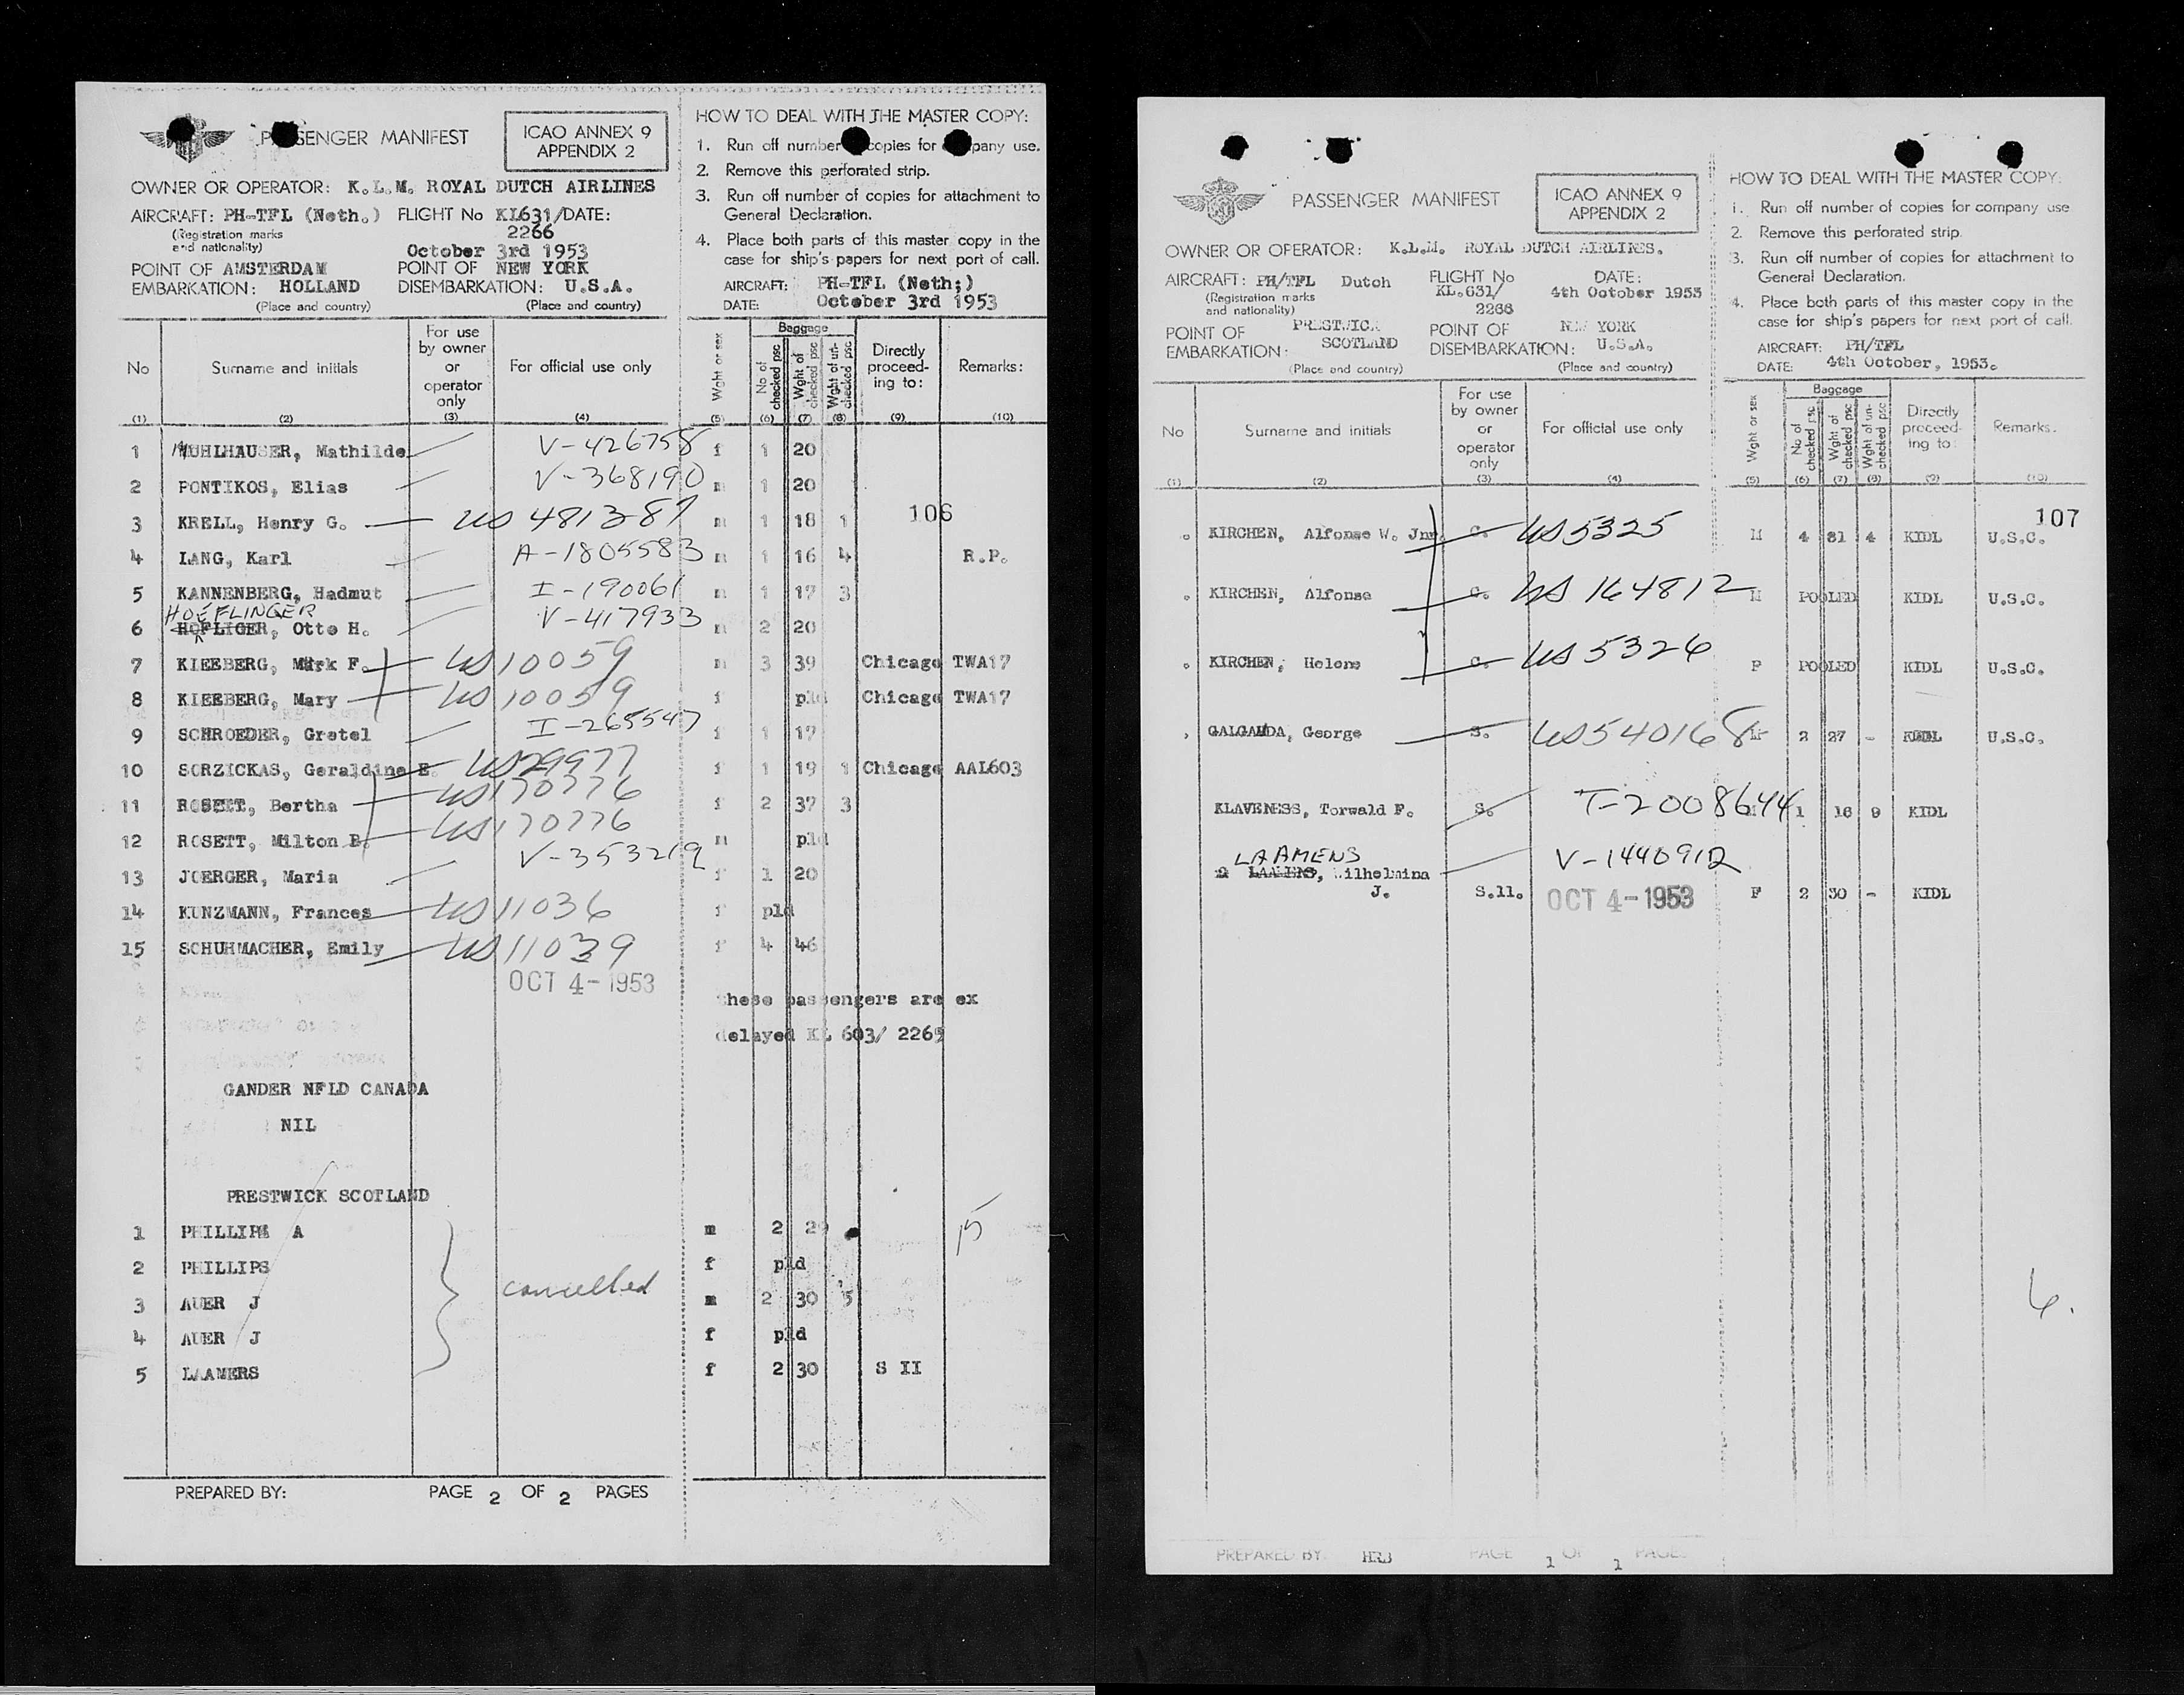 PASSENGER MANIFEST
ICAO ANNEX 9
APPENDIX 2
OWNER OR OPERATOR: K.L.M. ROYAL DUTCH AIRLINES
AIRCRAFT: PH-TFL (Neth.) FLIGHT No KL631/DATE:
(Registration marks and nationality) 2266
October 3rd 1953
POINT OF AMSTERDAM POINT OF NEW YORK
EMBARKATION: HOLLAND DISEMBARKATION: U.S.A.
(Place and country) (Place and country)
HOW TO DEAL WITH THE MASTER COPY:
1. Run off number copies for pany use.
2. Remove this perforated strip.
3. Run off number of copies for attachment to
General Declaration.
4. Place both parts of this master copy in the
case for ship's papers for next port of call.
AIRCRAFT: PH-TFL (Neth;)
DATE: October 3rd 1953
No Surname and initials For use by owner or operator only For official use only Wght or sex Baggage No of checked psc Wght of checked psc Wght of un-checked psc Directly proceed-ing to: Remarks:
(1) (2) (3) (4) (5) (6) (7) (8) (9) (10)
1 MUHLHAUSER, Mathilde V-426758 f 1 20
2 PONTIKOS, Elias V-368190 m 1 20
106
3 KRELL, Henry G. US 481387 m 1 18 1
4 LANG, Karl A-1805583 m 1 16 4 R.P.
5 KANNENBERG, Hadmut I-190061 m 1 17 3
HOEFLINGER
6 HOFLIGER, Otto H. V-417933 m 2 20
7 KIEEBERG, Mark F. US 10059 m 3 39 Chicago TWA17
8 KIEEBERG, Mary US 10059 f pld Chicago TWA17
9 SCHROEDER, Gretel I-265547 f 1 17
10 SORZICKAS, Geraldine E. US29977 f 1 19 1 Chicago AAL603
11 ROSETT, Bertha US170776 f 2 37 3
12 ROSETT, Milton B. US170776 m pld
13 JOERGER, Maria V-353219 f 1 20
14 KUNZMANN, Frances US11036 f pld
15 SCHUHMACHER, Emily US11039 f 4 46
OCT 4-1953
these passengers are ex
delayed KL 603/ 2265
GANDER NFLD CANADA
NIL
PRESTWICK SCOTLAND
1 PHILLIPS A m 2 29 15
2 PHILLIPS f pld
cancelled
3 AUER J m 2 30 5
4 AUER J f pld
5 LAAMERS f 2 30 S II
PREPARED BY: PAGE 2 OF 2 PAGES
PASSENGER MANIFEST
ICAO ANNEX 9
APPENDIX 2
OWNER OR OPERATOR: K.L.M. ROYAL DUTCH AIRLINES.
AIRCRAFT: PH/TFL Dutch FLIGHT No DATE:
(Registration marks and nationality) KL.631/ 2266 4th October 1953
POINT OF PRESTWICK POINT OF NEW YORK
EMBARKATION: SCOTLAND DISEMBARKATION: U.S.A.
(Place and country) (Place and country)
HOW TO DEAL WITH THE MASTER COPY:
1. Run off number of copies for company use
2. Remove this perforated strip.
3. Run off number of copies for attachment to
General Declaration.
4. Place both parts of this master copy in the
case for ship's papers for next port of call.
AIRCRAFT: PH/TFL
DATE: 4th October, 1953.
No Surname and initials For use by owner or operator only For official use only Wght or sex Baggage No of checked psc Wght of checked psc Wght of un-checked psc Directly proceed-ing to: Remarks.
(1) (2) (3) (4) (5) (6) (7) (8) (9) (10)
107
KIRCHEN, Alfonse W. Jnr. C. US5325 M 4 81 4 KIDL U.S.C.
KIRCHEN, Alfonse C. US 164812 M POOLED KIDL U.S.C.
KIRCHEN, Helene C. US 5326 F POOLED KIDL U.S.C.
GALGANDA, George S. US540168 M 2 27 - KIDL U.S.C.
KLAVENESS, Torwald F. S. T-2008644 1 16 9 KIDL
LAAMENS V-1440912
LAAMERS, Wilhelmina
J. S.11. OCT 4-1953 F 2 30 - KIDL
6.
PREPARED BY: HRB PAGE 1 OF 1 PAGE